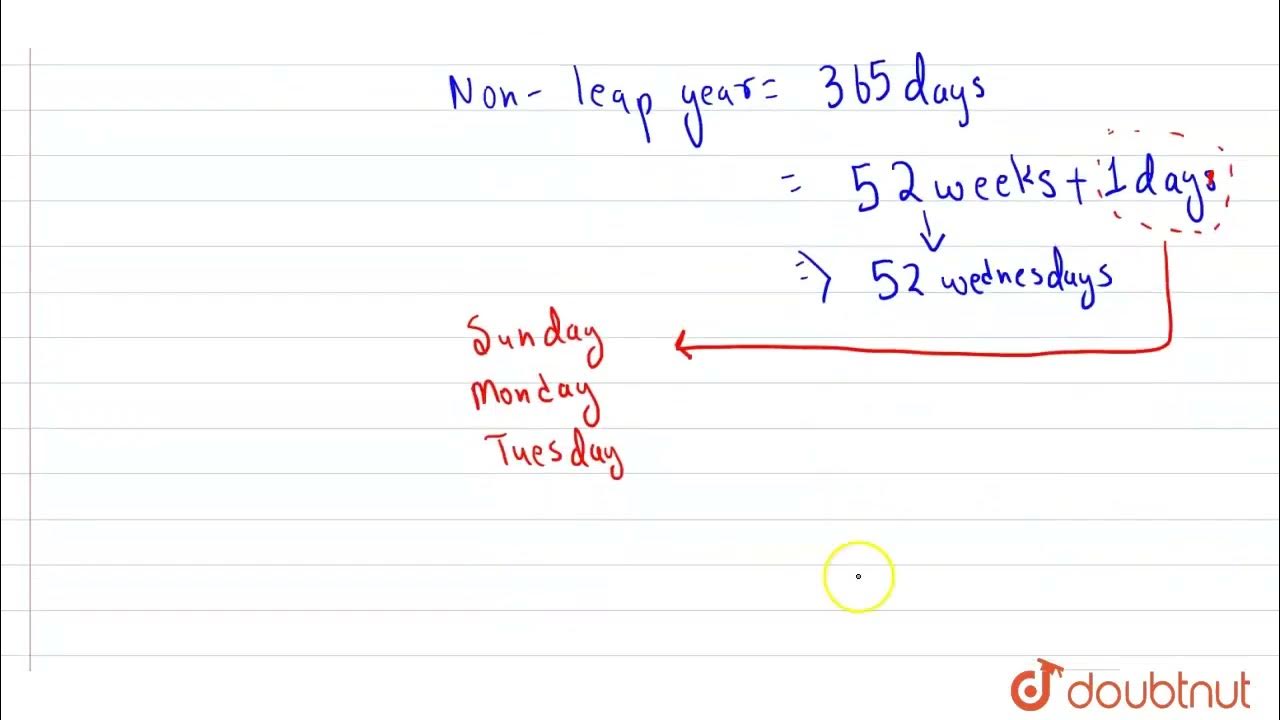 Non- leap year= 365 days
= 52 weeks + 1 days
⇒ 52 wednesdays
Sunday
Monday
Tuesday
doubtnut